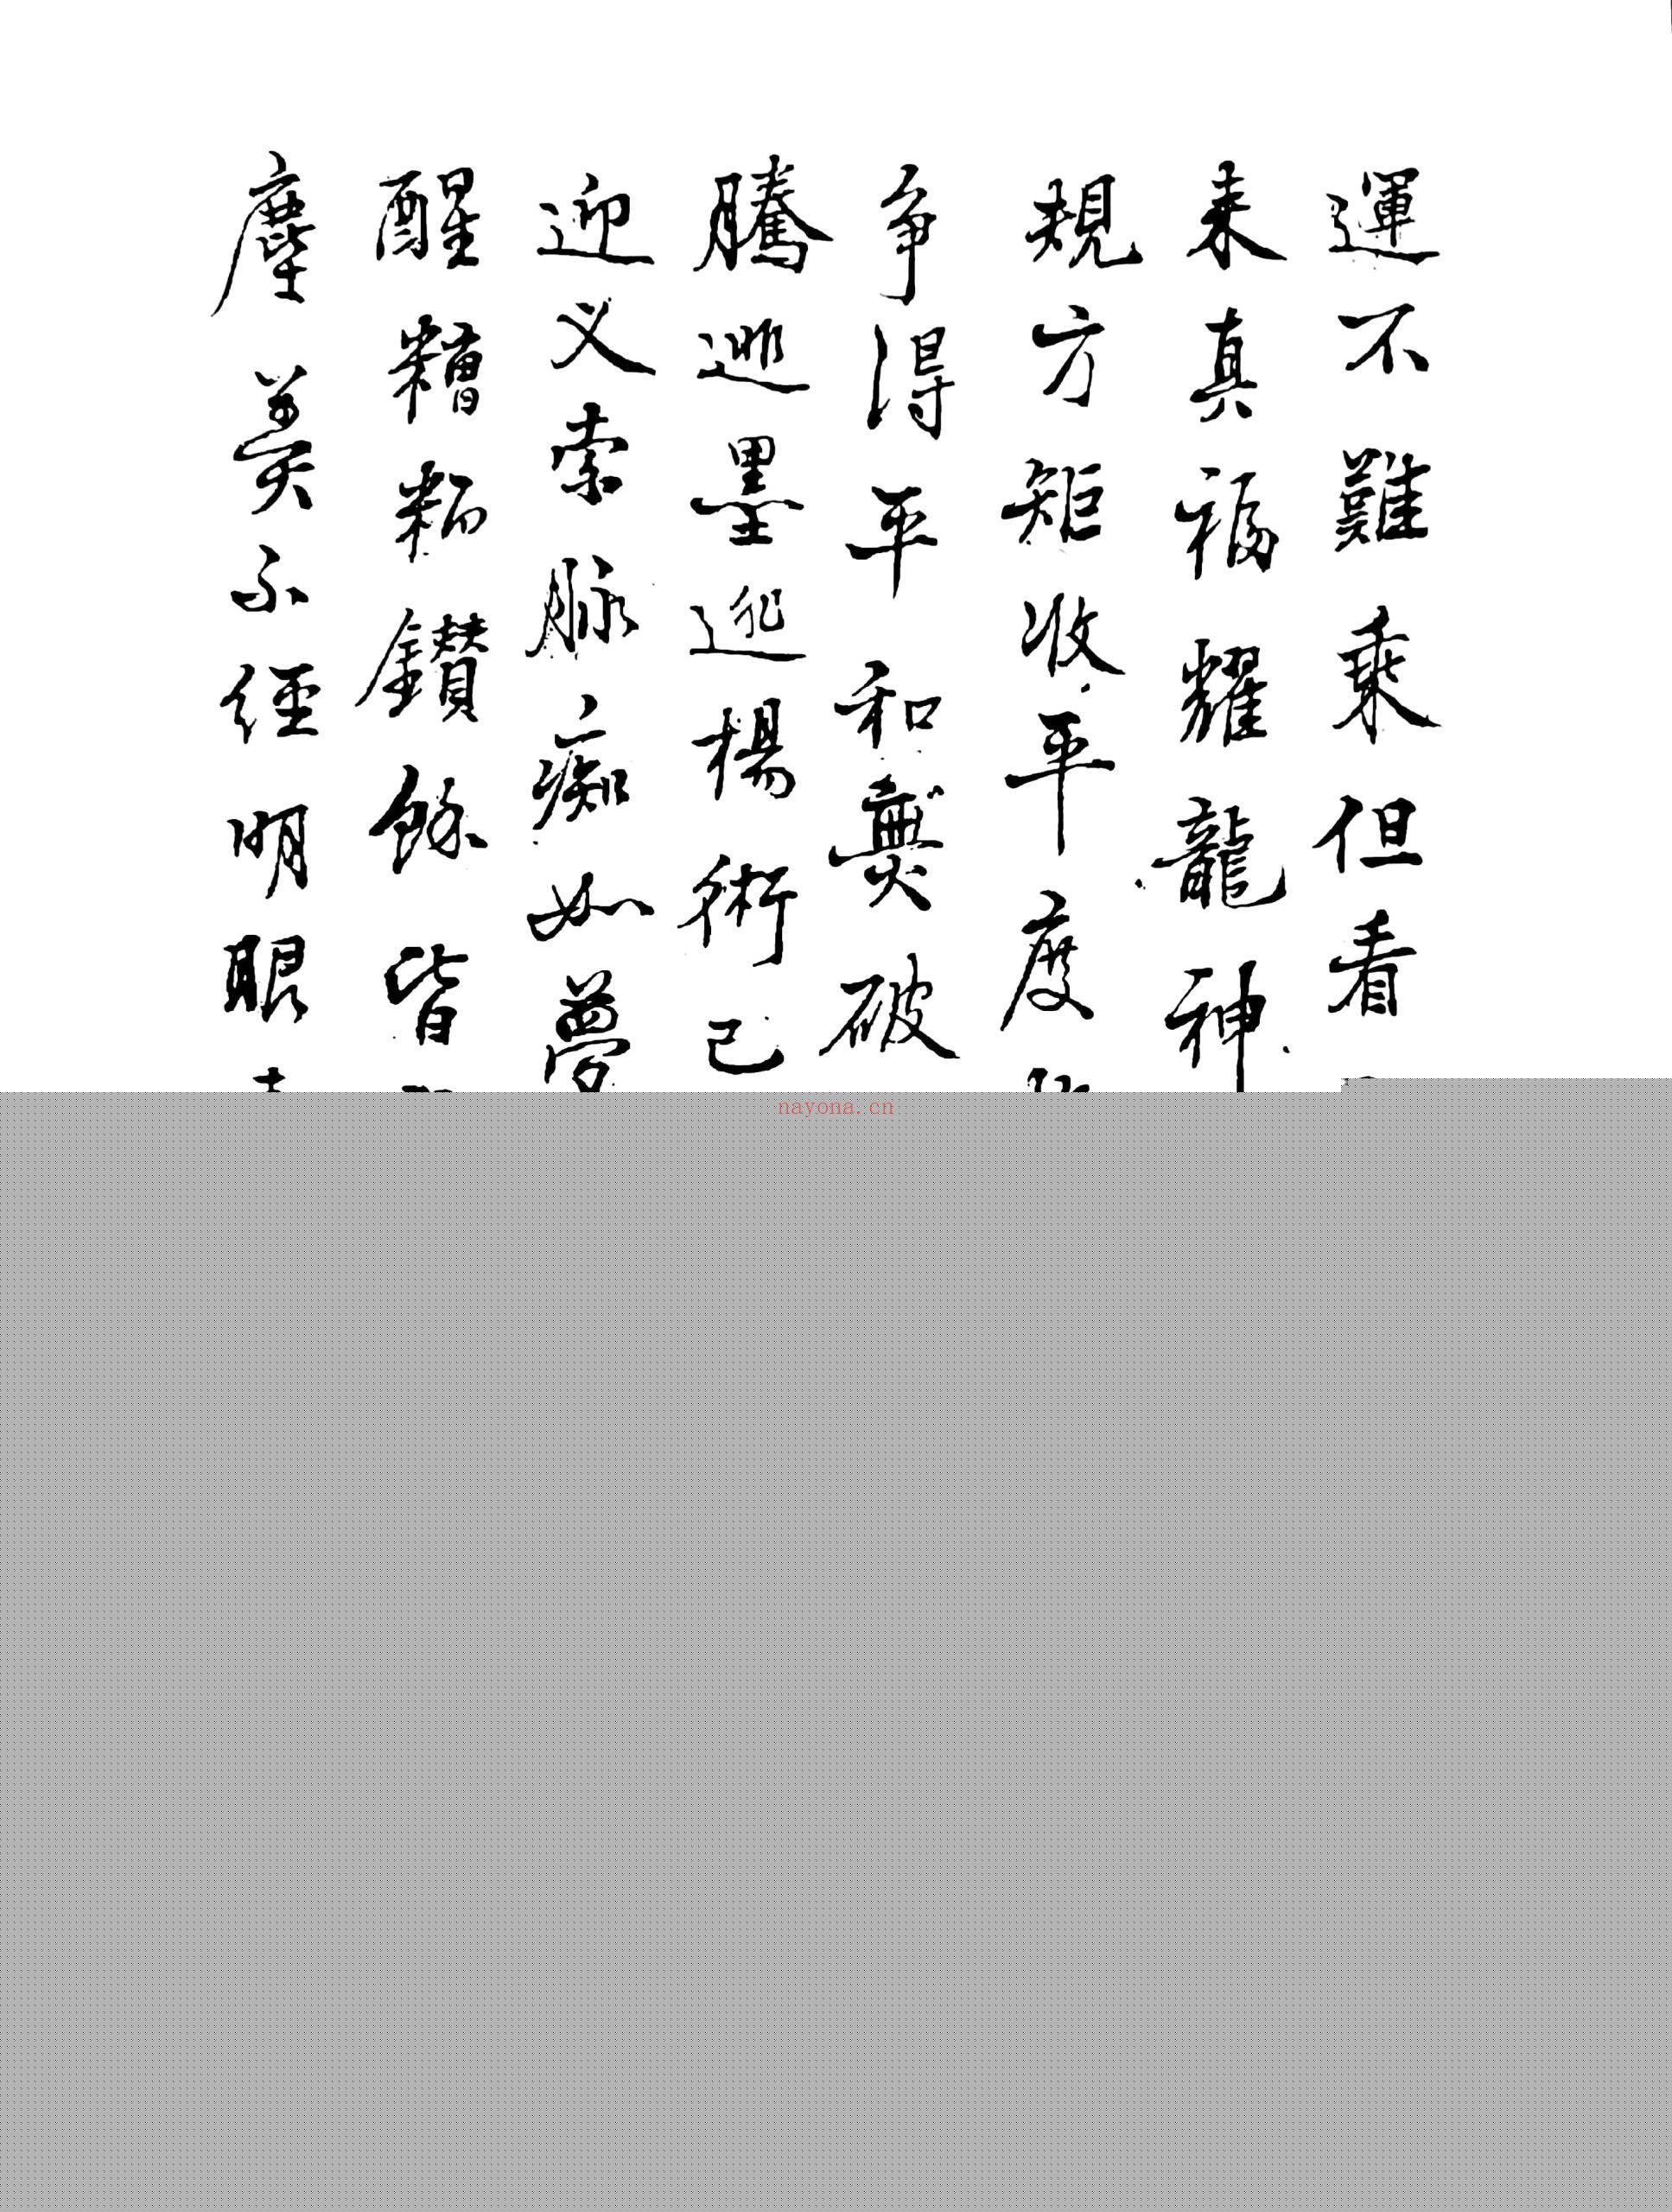 運不難乘但看
来真福耀龍神
規方矩收平度
爭得平和爨破
騰逃墨逃楊術已
迎义索脉痴如夢
醒糟粕鑽餘皆
塵羹不經明眼
nayona.cn